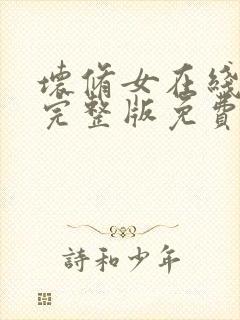 壞脩女在綫
完整版免費
詩和少年